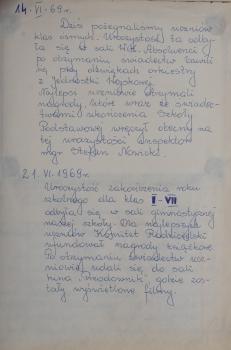 14.VI-69r.
Dziś pożegnaliśmy uczniów
klas ósmych. Uroczystość ta odby-
ła się w sali W.K. Absolwenci
po otrzymaniu świadectw bawili
się przy dźwiękach orkiestry
z Jednostki Wojskowej.
Najlepsi uczniowie otrzymali
nagrody, które wraz ze świadec-
twami ukończenia Szkoły
Podstawowej wręczył obecny na
tej uroczystości inspektor
mgr Stefan Nowicki.
21.VI.1969r.
Uroczystość zakończenia roku
szkolnego dla klas I-VII
odbyła się w sali gimnastycznej
naszej szkoły. Dla najlepszych
uczniów Komitet Rodzicielski
ufundował nagrody książkowe.
Po otrzymaniu świadectw ucz-
niowie udali się do sali
kina "", gdzie zos-
tały wyświetlone filmy.